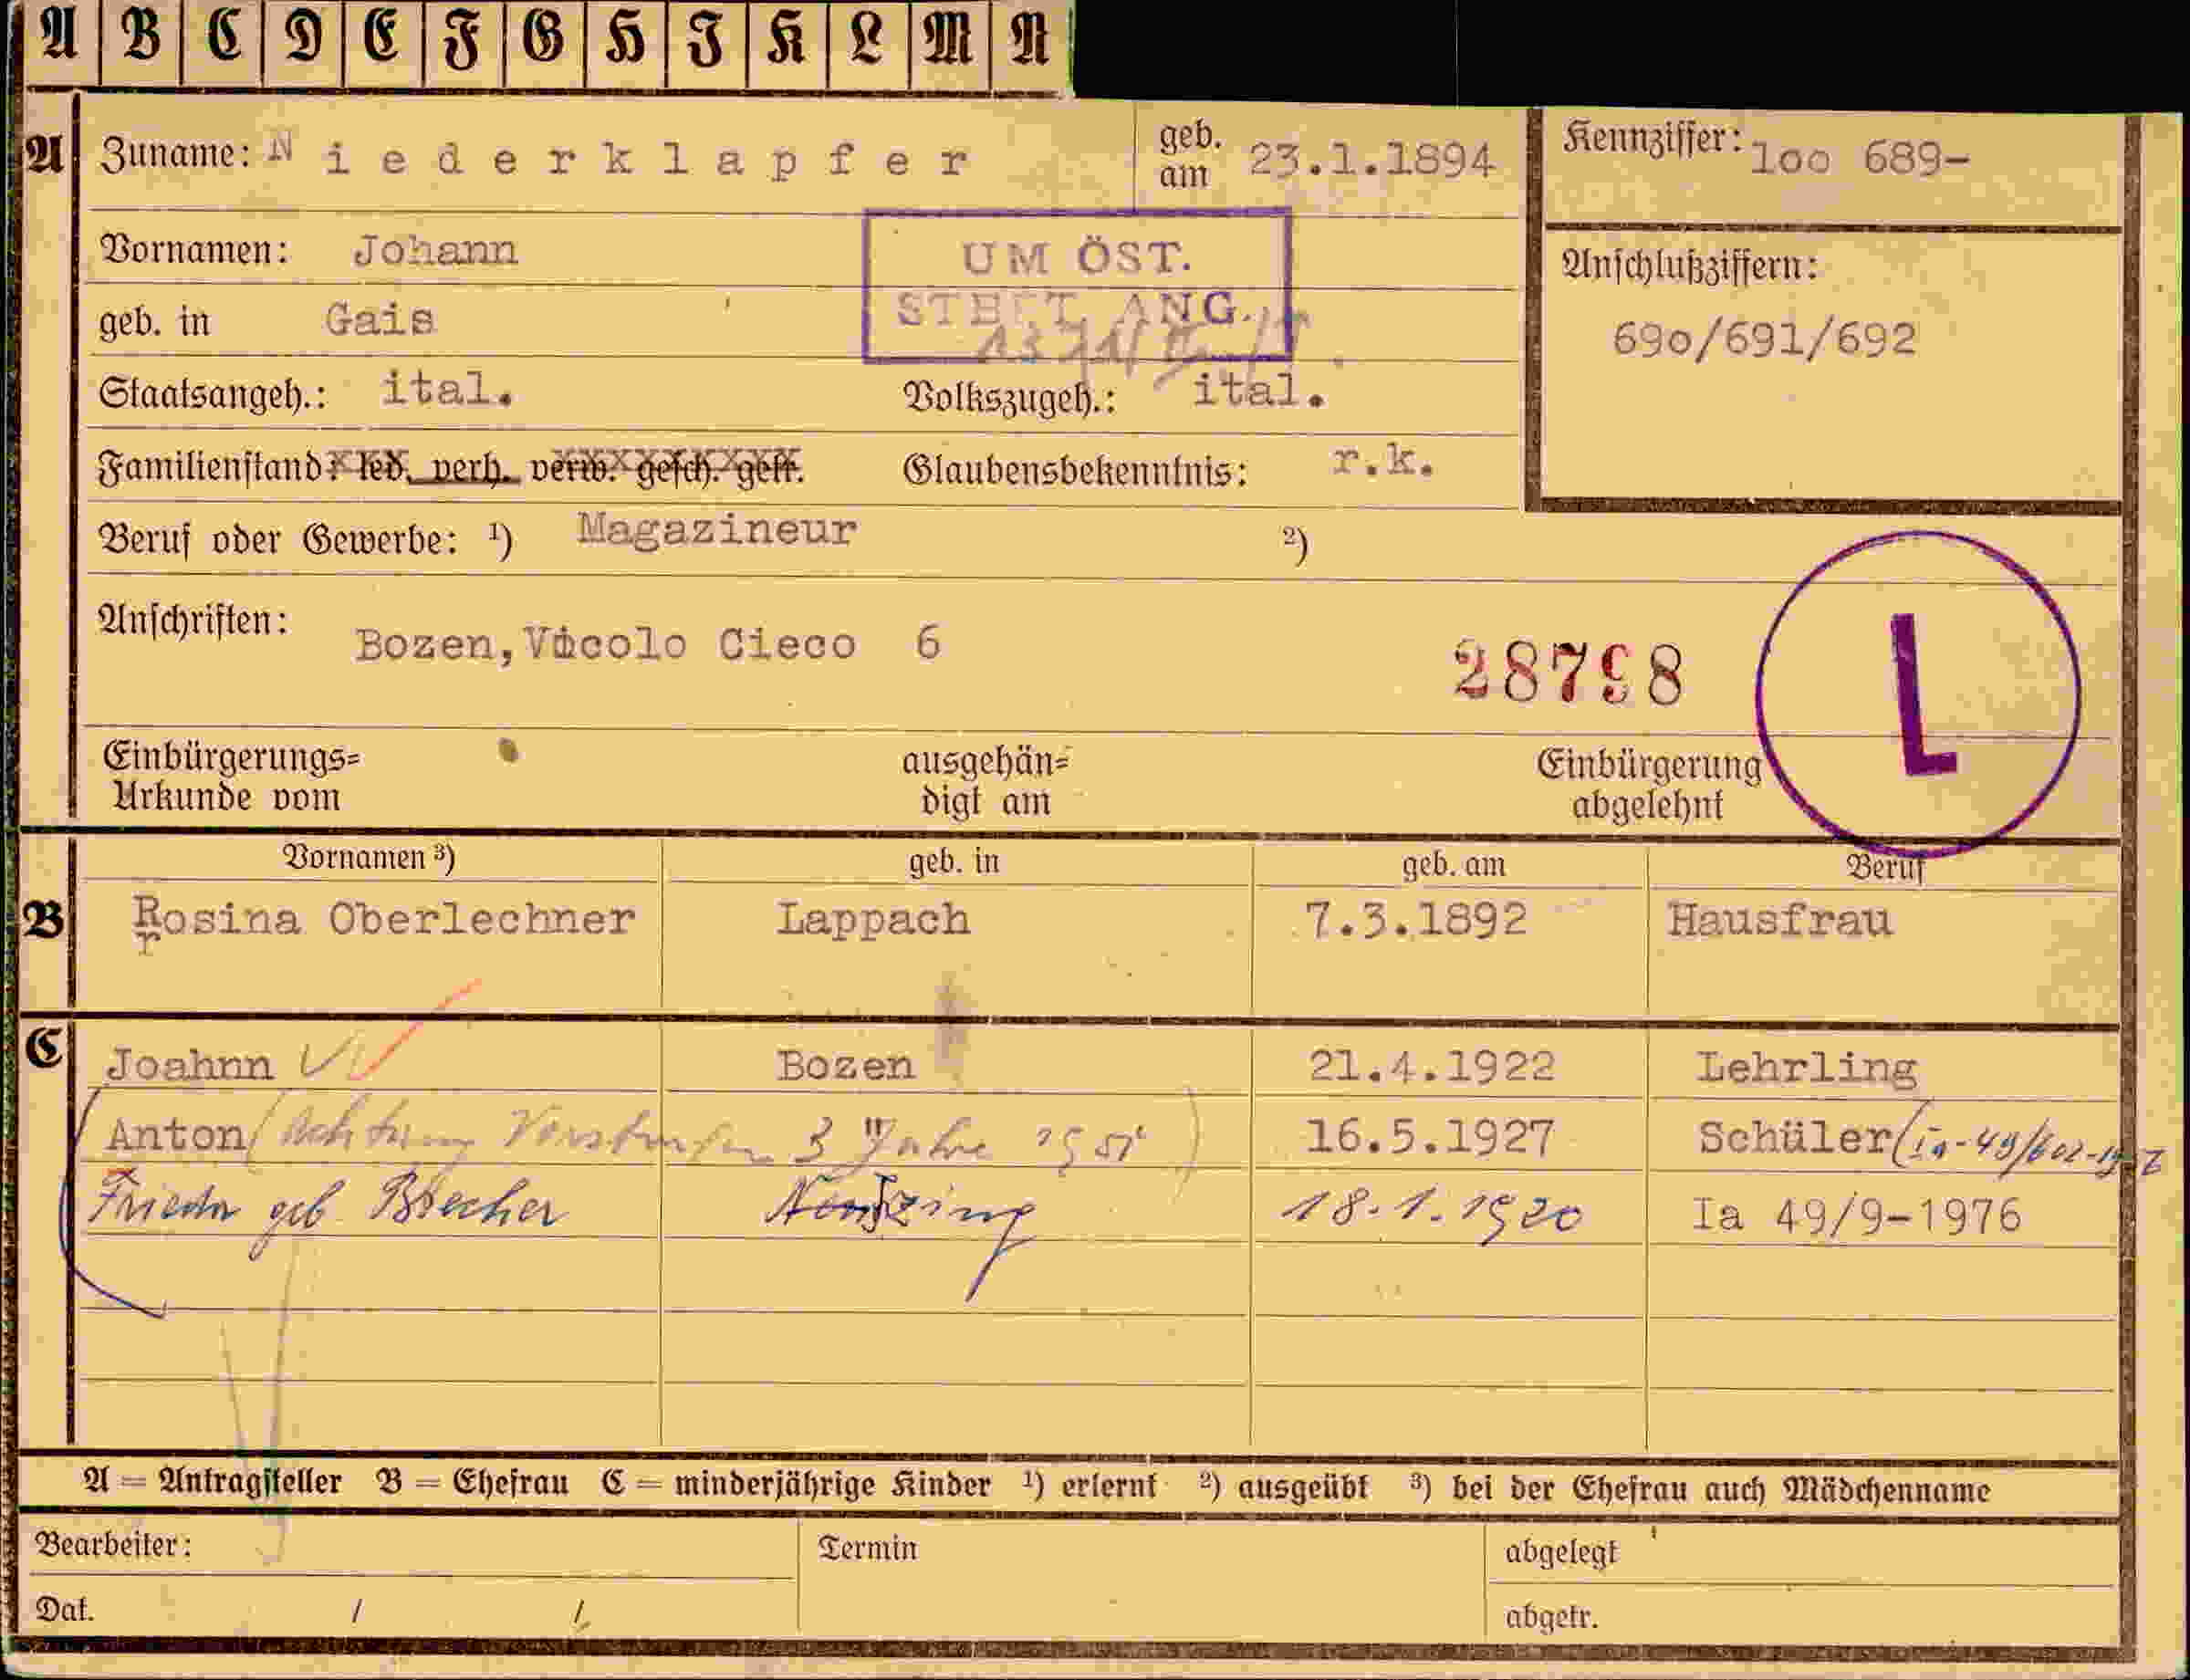 A B C D E F G H I K L M N
A Zuname: Niederklapfer geb. am 23.1.1894 Kennziffer: 1oo 689-
UM ÖST.
Vornamen: Johann Anschlußziffern:
STBFT. ANG.
geb. in Gais 69o/691/692
Staatsangeh.: ital. Volkszugeh.: ital.
Familienstand: led. verh. verw. gesch. getr. Glaubensbekenntnis: r.k.
Beruf oder Gewerbe: ¹) Magazineur ²)
Anschriften: Bozen, Vicolo Cieco 6
28798 L
Einbürgerungs= ausgehän= Einbürgerung
Urkunde vom digt am abgelehnt
Vornamen ³) geb. in geb. am Beruf
B Rosina Oberlechner Lappach 7.3.1892 Hausfrau
r
C Joahnn Bozen 21.4.1922 Lehrling
Anton (Achtung 3 Jahre 1951) 16.5.1927 Schüler
Frieda geb. Nenzing 18.1.1920 Ia 49/9-1976
A = Antragsteller B = Ehefrau C = minderjährige Kinder ¹) erlernt ²) ausgeübt ³) bei der Ehefrau auch Mädchenname
Bearbeiter: Termin abgelegt
Dat. / / abgetr.